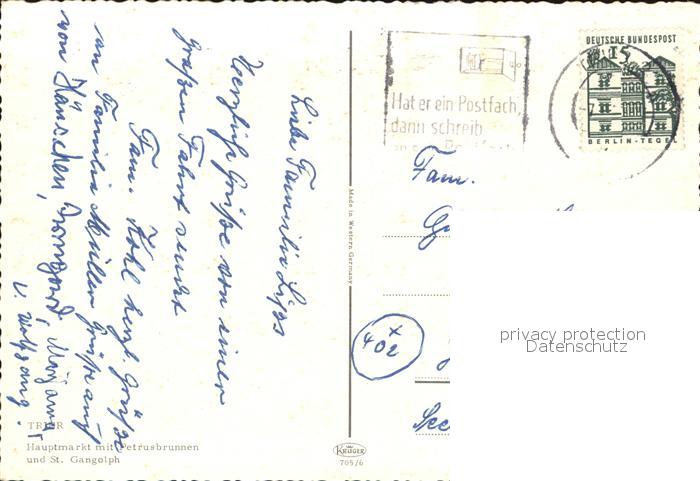 Liebe Familie Lips
Herzliche Grüße von einer
großen Fahrt sendet
Fam. Kohl herzl. Grüße
an Familie Müller Grüße auch
von Hänschen, Irmgard,
u. Wolfgang.
TRIER
Hauptmarkt mit Petrusbrunnen
und St. Gangolph
Made in Western Germany
KRÜGER
705/6
Hat er ein Postfach,
dann schreib
DEUTSCHE BUNDESPOST
15
BERLIN-TEGEL
Fam.
402
privacy protection
Datenschutz